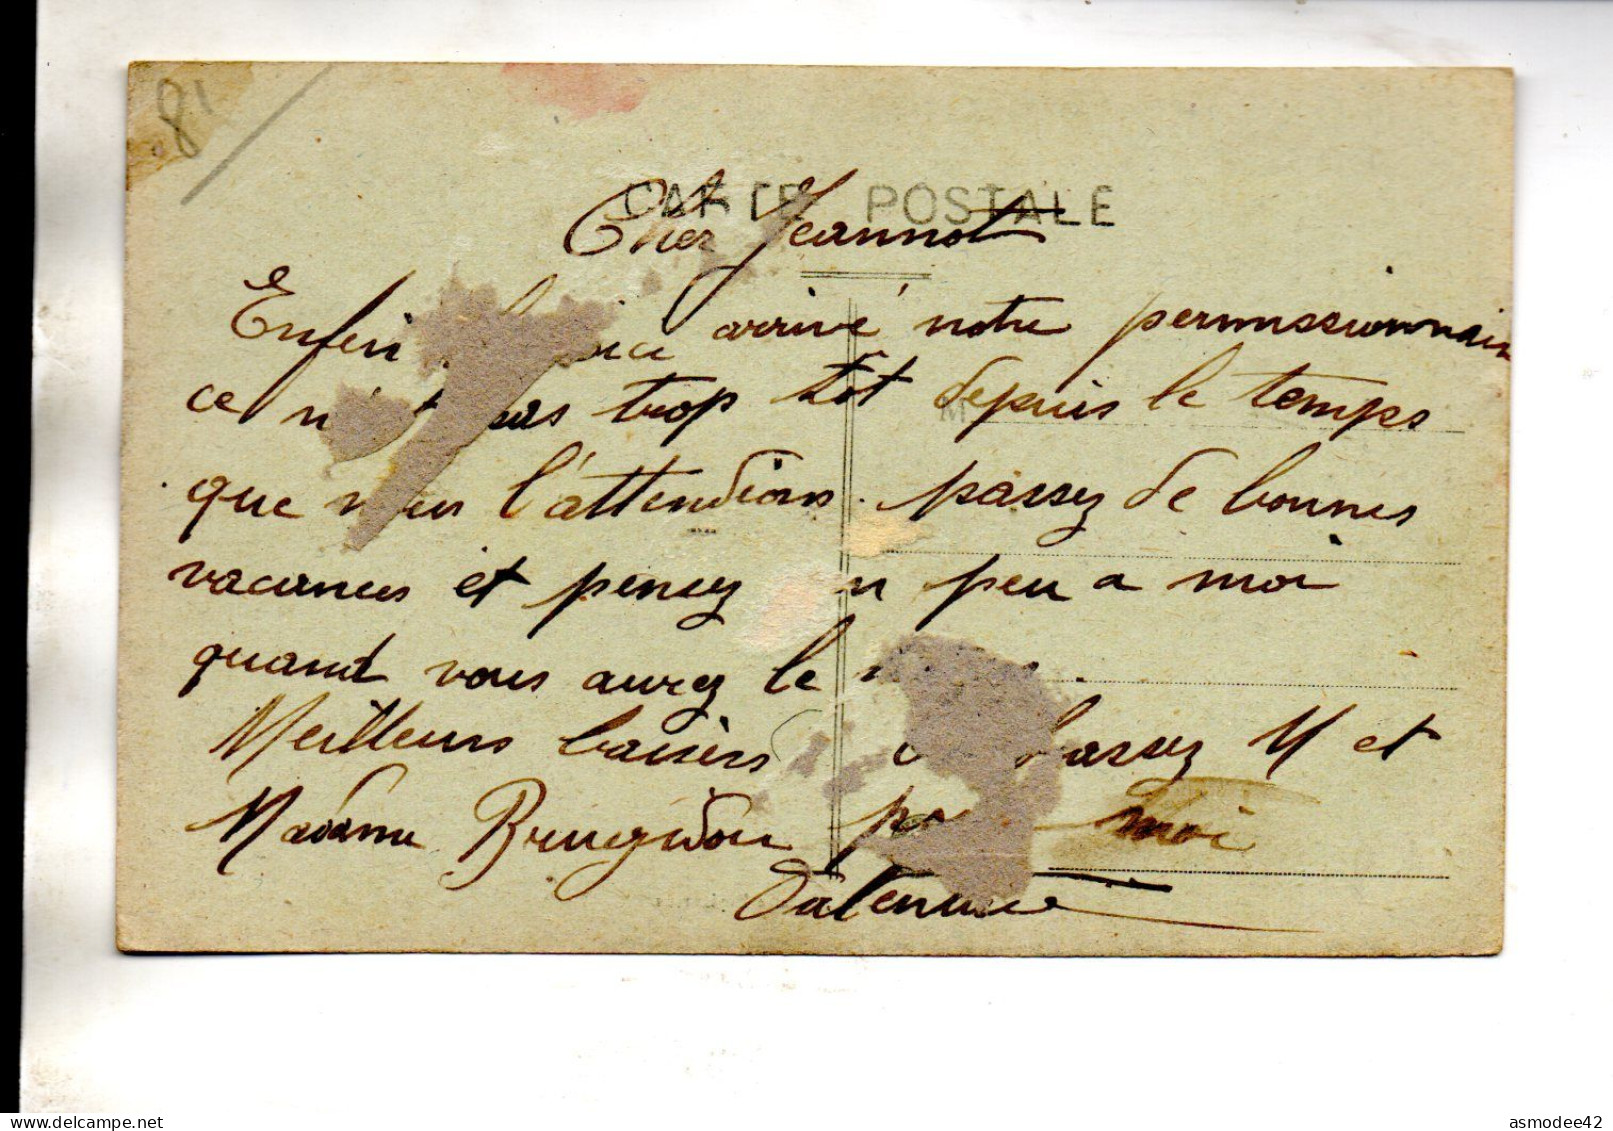 81
CARTE POSTALE
Cher Jeannot
Enfin voici arrivé notre permissionnair
ce n' pas trop tôt depuis le temps
que nous l'attendions. passez de bonnes
vacances et pensez un peu a moi
quand vous aurez le
Meilleurs baisers embrassez M et
Madame pour moi
asmodee42